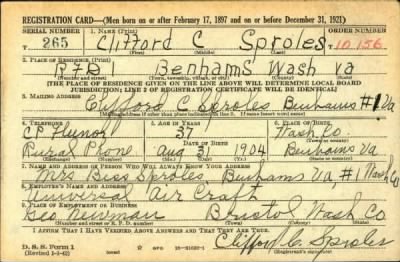 REGISTRATION CARD—(Men born on or after February 17, 1897 and on or before December 31, 1921)
SERIAL NUMBER 1. NAME (Print) ORDER NUMBER
265 Clifford C Sproles T 10,156
(First) (Middle) (Last)
2. PLACE OF RESIDENCE (Print)
RFD 1 Benhams Wash Va
(Number and street) (Town, township, village, or city) (County) (State)
[THE PLACE OF RESIDENCE GIVEN ON THE LINE ABOVE WILL DETERMINE LOCAL BOARD
JURISDICTION; LINE 2 OF REGISTRATION CERTIFICATE WILL BE IDENTICAL]
3. MAILING ADDRESS
Clifford C Sproles Benhams #1 Va
4. TELEPHONE 5. AGE IN YEARS 6. PLACE OF BIRTH
37 Wash Co
DATE OF BIRTH (Town or county)
Rural Phone Aug 31 1904 Benhams Va
(Exchange) (Number) (Mo.) (Day) (Yr.) (State or country)
7. NAME AND ADDRESS OF PERSON WHO WILL ALWAYS KNOW YOUR ADDRESS
Mrs Sproles Benhams Va #1 Wash Co
8. EMPLOYER'S NAME AND ADDRESS
Universal Air Craft
9. PLACE OF EMPLOYMENT OR BUSINESS
Geo Newman Bristol Wash Co
(Number and street or R. F. D. number) (Town) (County) (State)
I AFFIRM THAT I HAVE VERIFIED ABOVE ANSWERS AND THAT THEY ARE TRUE.
D. S. S. Form 1 Clifford C. Sproles
(Revised 1-1-42) (over) (Registrant's signature)